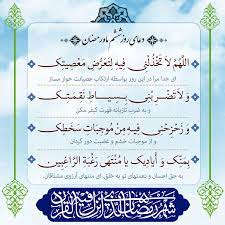 دعای روز ششم ماه رمضان
اللّهُمَّ لا تَخْذُلْنی فیهِ لِتَعَرُّضِ مَعْصِیَتِکَ
ای خدا مرا در این روز بواسطه ارتکاب عصیانت خوار مساز
وَ لا تَضْرِبْنی بِسیاطِ نَقِمَتِکَ
و به ضرب تازیانه قهرت کیفر مکن
وَ زَحْزِحْنی فیهِ مِنْ مُوجِباتِ سَخَطِکَ
و از موجبات خشم و غضبت دور گردان
بِمَنِّکَ وَ اَیادیکَ یا مُنْتَهی رَغْبَةِ الرّاغِبینَ
به حق احسان و نعمتهای تو به خلق، ای منتهای آرزوی مشتاقان.
شهر رمضان الذی انزل فیه القرآن